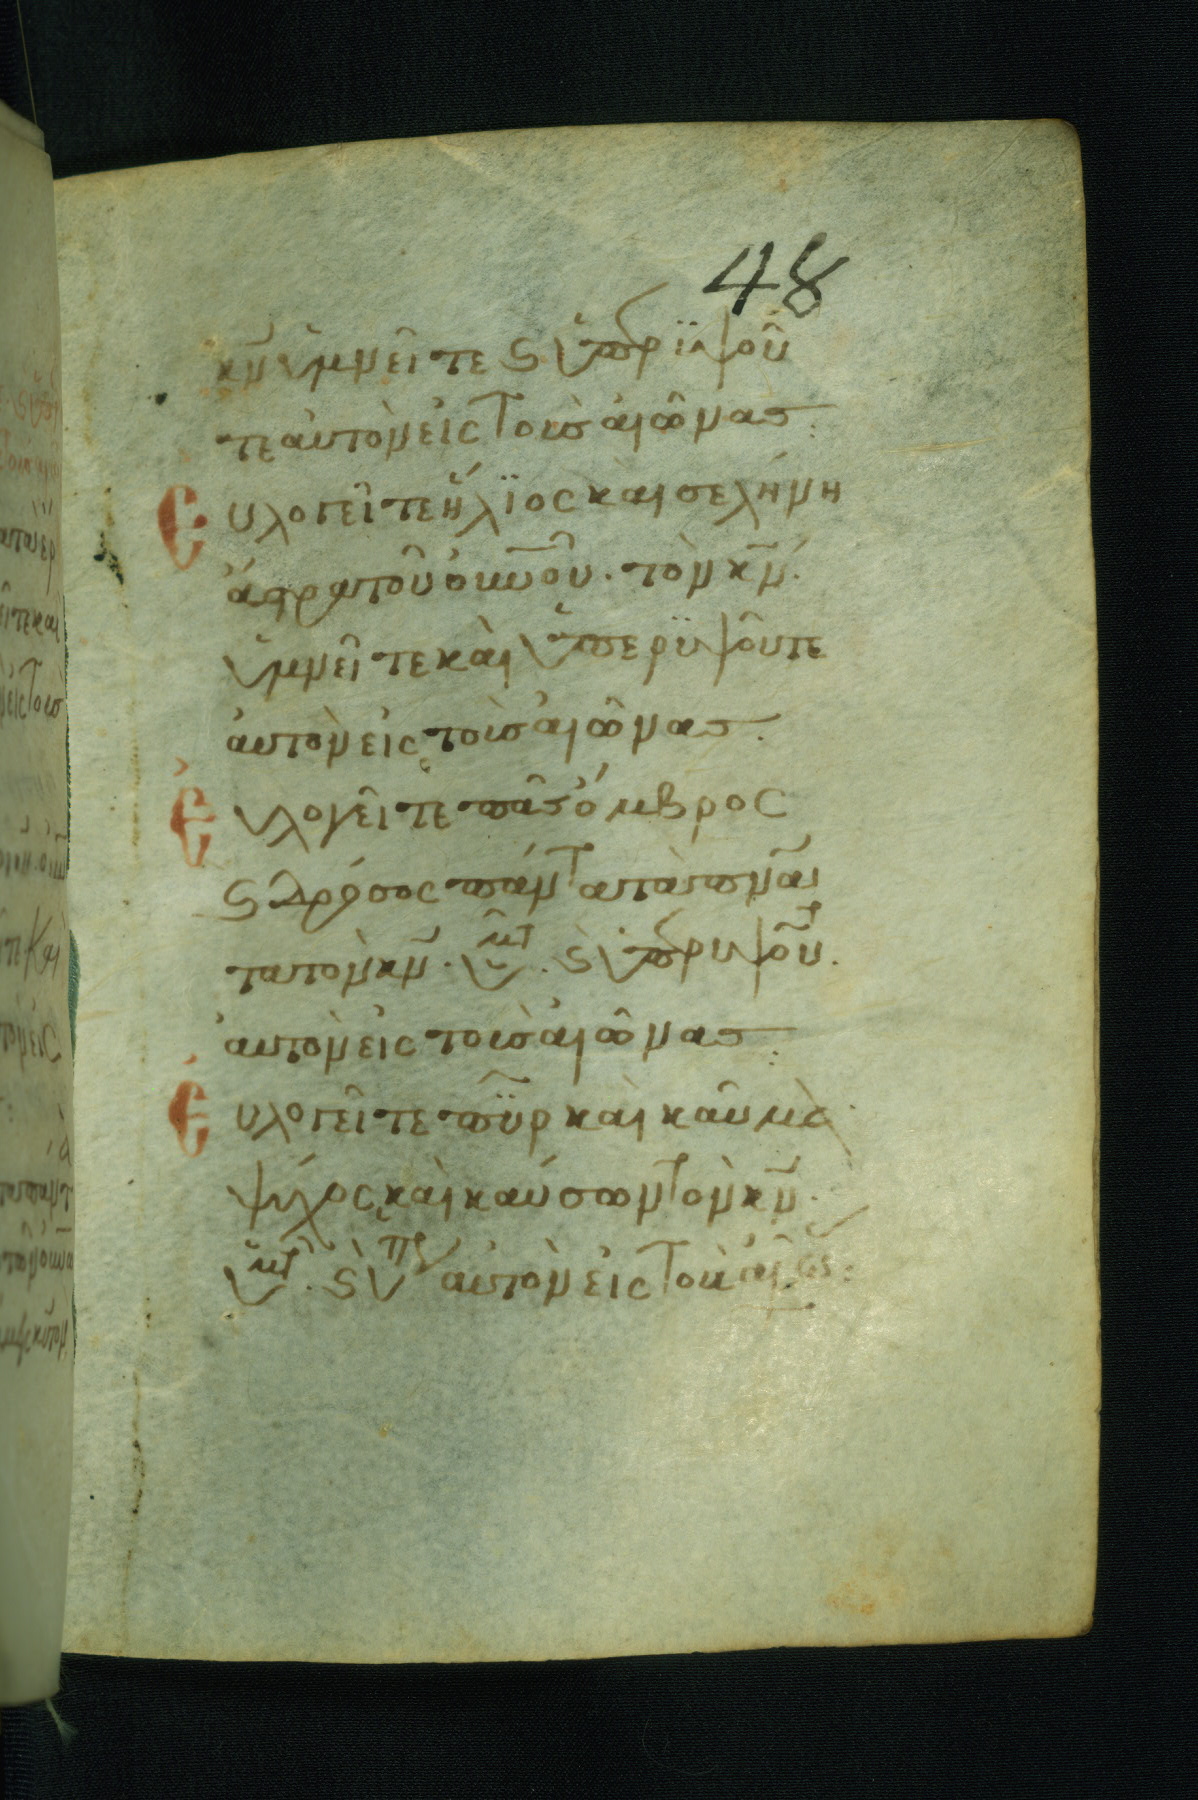 48
κν̄ ὑμνεῖτε ϗ ὑπερϊψοῦ
τε αυτὸν εἰς τοὺσ αἰῶνας :
Ευλογεῖτε ἥλϊος καὶ σελήνη
ἄστρα τοῦ οὐν͞οῦ · τὸν κν̄ ·
ὑμνεῖτε καὶ ὑπερϋψοῦτε
ἀυτὸν εἰς τοὺσ αἰῶνας ·
Ἐυλογεῖτε πᾶς ὄμβρος
ϗ δρόσος πάντα τὰ πν̄α
τα τὸν κν̄ · ὑμν͂τ · ϗ ὑπερυψοῦτ ·
ἀυτὸν εἰς τοὺσ αἰῶνας :
Ἐυλογεῖτε πῦρ καὶ καῦμα
ψύχος καὶ καύσων τὸν κν̄ ·
ὑμν͂τ · ϗ ὑπ ἀυτὸν εἰς τοὺ αἰῶς :